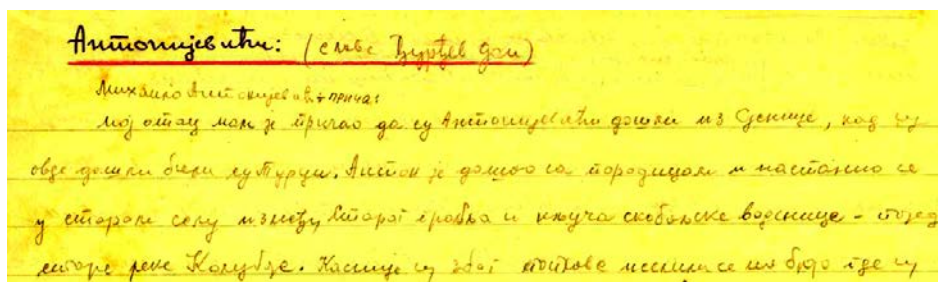 Антонијевићи: (славе Ђурђев дан)
Михаило Антонијевић прича:
Мој отац ми је причао да су Антонијевићи дошли из Сјенице, кад су
овде дошли били су Турци. Антон је дошао са породицом и настанио се
у старом селу између Старог гробља и кључа скобаљске воденице - поред
старе реке Колубаре. Касније су због поплаве иселили се на брдо где су